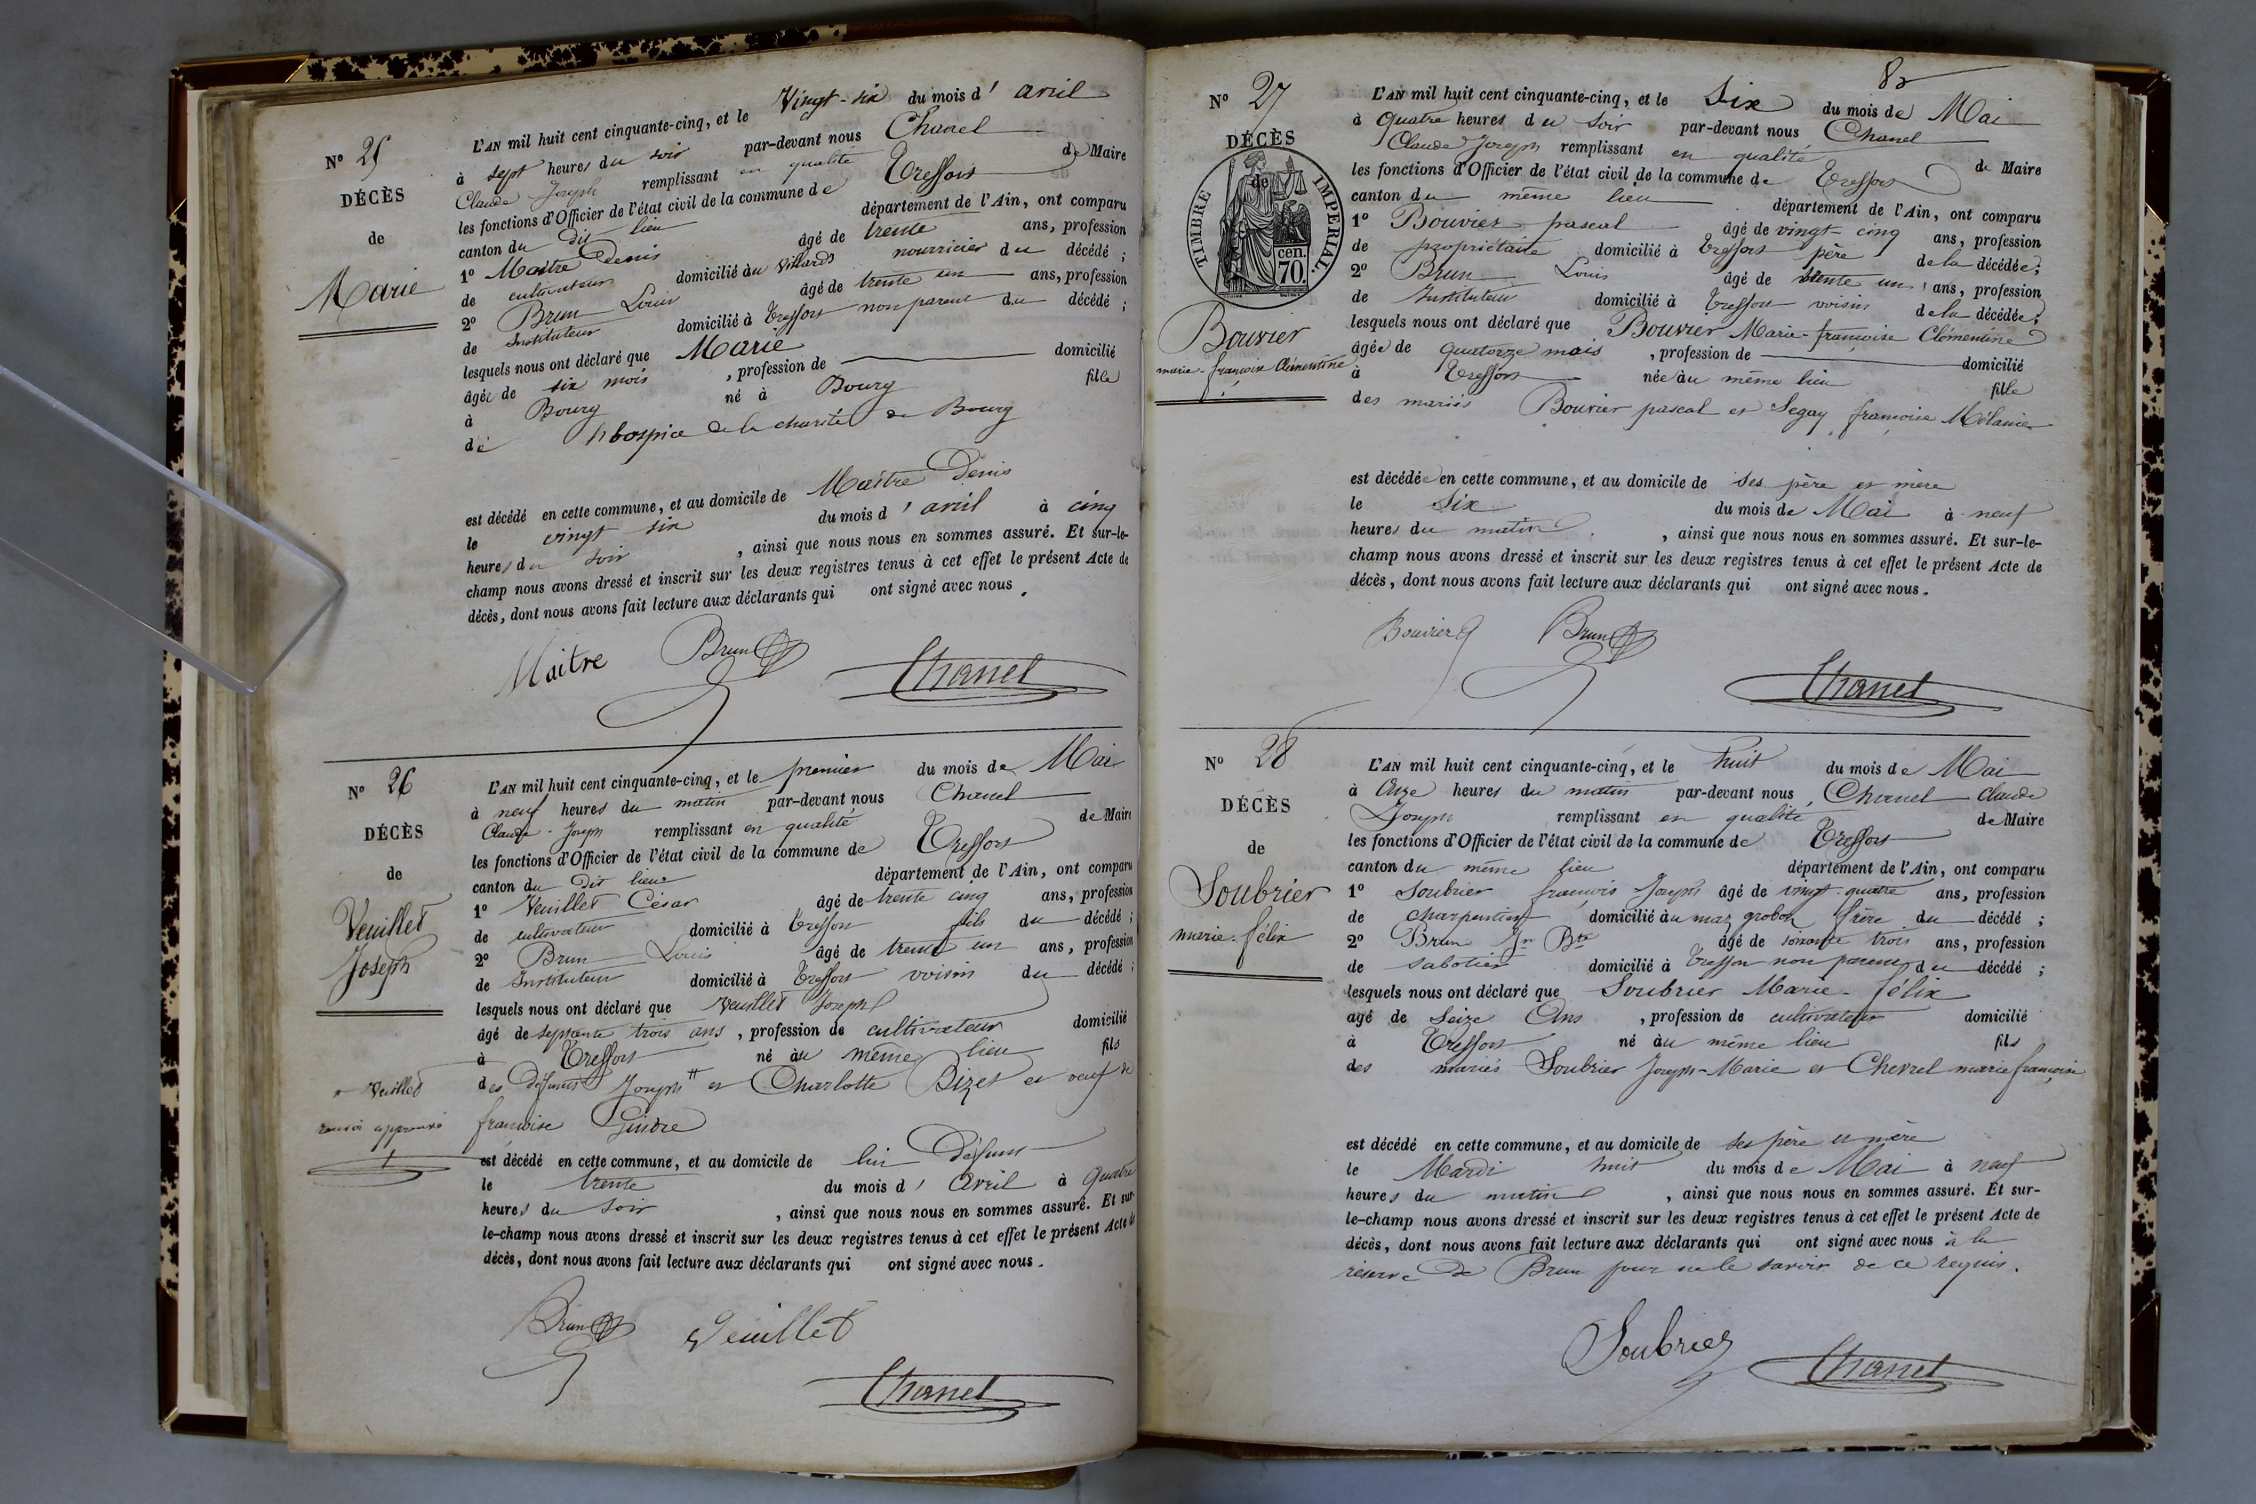 N° 25
DÉCÈS
de
Marie
L'AN mil huit cent cinquante-cinq, et le Vingt-six du mois d' avril
à sept heures du soir par-devant nous Chanel
Claude Joseph remplissant en qualité de Maire
les fonctions d'Officier de l'état civil de la commune de Treffort
canton du dit lieu département de l'Ain, ont comparu
1° Maître Denis âgé de trente ans, profession
de cultivateur domicilié au Villards nourricier du décédé ;
2° Brun Louis âgé de trente un ans, profession
de Instituteur domicilié à Treffort non parent du décédé ;
lesquels nous ont déclaré que Marie
âgée de six mois , profession de domicilié
à Bourg né à Bourg fille
de l'hospice de la charité de Bourg
est décédé en cette commune, et au domicile de Maître Denis
le vingt six du mois d' avril à cinq
heures du soir , ainsi que nous nous en sommes assuré. Et sur-le-
champ nous avons dressé et inscrit sur les deux registres tenus à cet effet le présent Acte de
décès, dont nous avons fait lecture aux déclarants qui ont signé avec nous.
Maitre Brun Chanel
N° 26
DÉCÈS
de
Veuillet
Joseph
L'AN mil huit cent cinquante-cinq, et le premier du mois de Mai
à neuf heures du matin par-devant nous Chanel
Claude-Joseph remplissant en qualité de Maire
les fonctions d'Officier de l'état civil de la commune de Treffort
canton du Dit lieu département de l'Ain, ont comparu
1° Veuillet César âgé de trente cinq ans, profession
de cultivateur domicilié à Treffort fils du décédé ;
2° Brun Louis âgé de trente un ans, profession
de Instituteur domicilié à Treffort voisin du décédé ;
lesquels nous ont déclaré que Veuillet Joseph
âgé de septante trois ans , profession de cultivateur domicilié
à Treffort né au même lieu fils
des Défunts Joseph # et Charlotte Bizet et veuf de
françoise Gindre
# Veuillet
renvoi approuvé
est décédé en cette commune, et au domicile de lui Défunt
le trente du mois d' Avril à quatre
heures du soir , ainsi que nous nous en sommes assuré. Et sur-
le-champ nous avons dressé et inscrit sur les deux registres tenus à cet effet le présent Acte de
décès, dont nous avons fait lecture aux déclarants qui ont signé avec nous.
Brun Veuillet
Chanel
82
N° 27
DÉCÈS
de
TIMBRE IMPERIAL.
cen.
70.
Bouvier
marie-françoise Clémentine
L'AN mil huit cent cinquante-cinq, et le Six du mois de Mai
à Quatre heures du soir par-devant nous Chanel
Claude Joseph remplissant en qualité de Maire
les fonctions d'Officier de l'état civil de la commune de Treffort
canton du même lieu département de l'Ain, ont comparu
1° Bouvier pascal âgé de vingt-cinq ans, profession
de propriétaire domicilié à Treffort père de la décédée ;
2° Brun Louis âgé de trente un ans, profession
de Instituteur domicilié à Treffort voisin de la décédée ;
lesquels nous ont déclaré que Bouvier Marie-françoise Clémentine
âgée de quatorze mois , profession de domicilié
à Treffort née au même lieu fille
des mariés Bouvier pascal et Segay françoise Mélanie
est décédée en cette commune, et au domicile de ses père et mère
le Six du mois de Mai à neuf
heures du matin , ainsi que nous nous en sommes assuré. Et sur-le-
champ nous avons dressé et inscrit sur les deux registres tenus à cet effet le présent Acte de
décès, dont nous avons fait lecture aux déclarants qui ont signé avec nous.
Bouvier Brun
Chanel
N° 28
DÉCÈS
de
Soubrier
marie-félix
L'AN mil huit cent cinquante-cinq, et le huit du mois de Mai
à Onze heures du matin par-devant nous Chanel Claude
Joseph remplissant en qualité de Maire
les fonctions d'Officier de l'état civil de la commune de Treffort
canton du même lieu département de l'Ain, ont comparu
1° Soubrier françois Joseph âgé de vingt-quatre ans, profession
de charpentier domicilié au maz grobon frère du décédé ;
2° Brun Jn Bte âgé de soixante trois ans, profession
de sabotier domicilié à Treffort non parent du décédé ;
lesquels nous ont déclaré que Soubrier Marie-félix
agé de Seize Ans , profession de cultivateur domicilié
à Treffort né au même lieu fils
des mariés Soubrier Joseph-Marie et Chevrel marie françoise
est décédé en cette commune, et au domicile de ses père et mère
le Mardi huit du mois de Mai à neuf
heures du matin , ainsi que nous nous en sommes assuré. Et sur-
le-champ nous avons dressé et inscrit sur les deux registres tenus à cet effet le présent Acte de
décès, dont nous avons fait lecture aux déclarants qui ont signé avec nous à la
réserve de Brun pour ne le savoir de ce requis.
Soubrier
Chanel